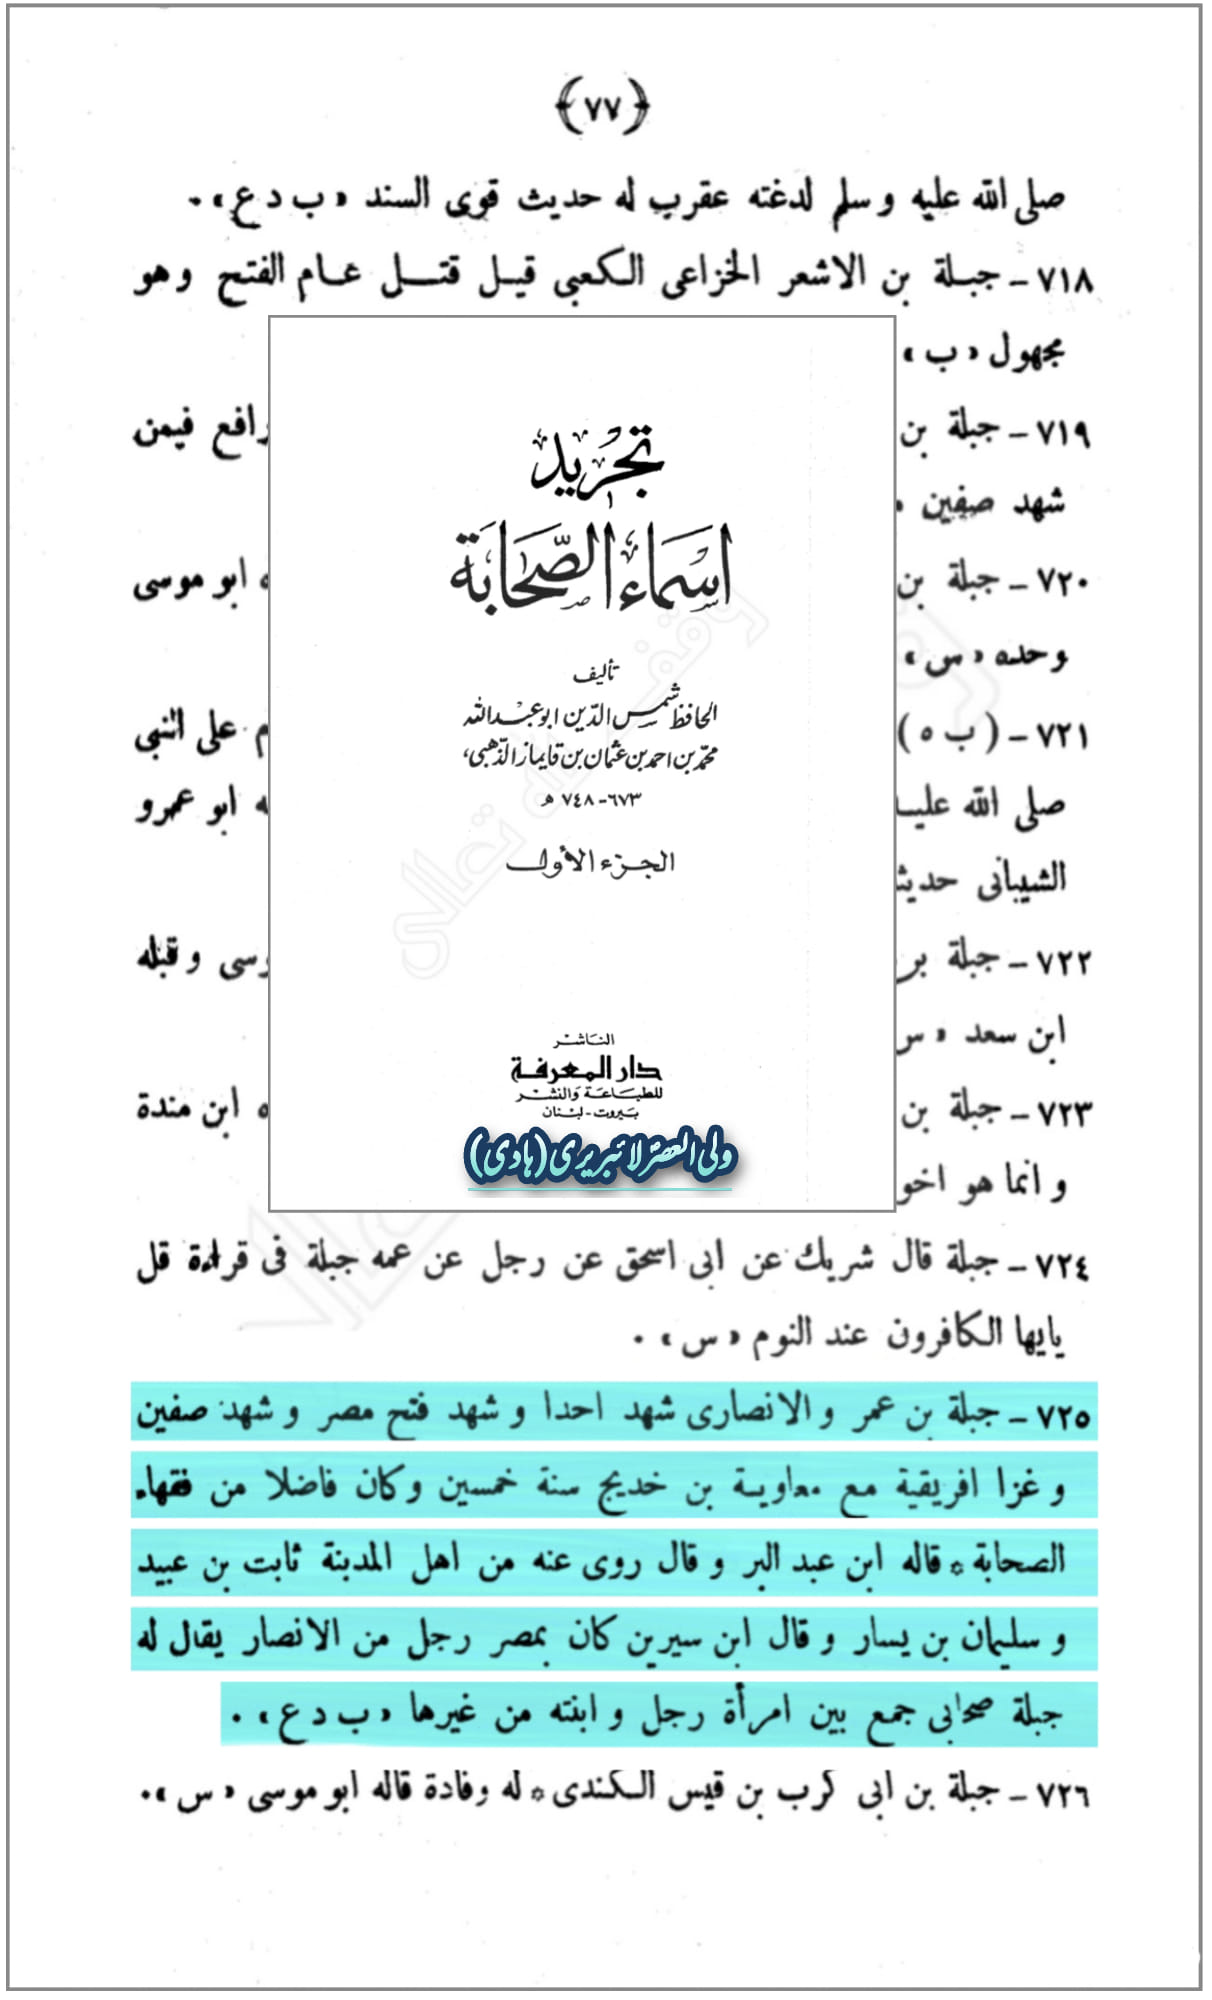 ﴿٧٧﴾
صلى الله عليه وسلم لدغته عقرب له حديث قوى السند « ب د ع » .
٧١٨ - جبلة بن الاشعر الخزاعى الكعبى قيل قتل عام الفتح وهو
مجهول « ب »
٧١٩ - جبلة بن رافع فيمن
شهد صفين
٧٢٠ - جبلة بن ابو موسى
وحده « س »
٧٢١ - (ب ه) على النبى
صلى الله عليه ابو عمرو
الشيبانى حديث
٧٢٢ - جبلة وقبله
ابن سعد « س
٧٢٣ - جبلة بن ابن مندة
و انما هو اخو
تجريد
اسماء الصحابة
تأليف
الحافظ شمس الدين ابو عبد الله
محمد بن احمد بن عثمان بن قايماز الذهبى،
٦٧٣-٧٤٨ ه
الجزء الأول
الناشر
دار المعرفة
للطباعة والنشر
بيروت - لبنان
ولی العصر لائبریری (ہادی)
٧٢٤ - جبلة قال شريك عن ابى اسحق عن رجل عن عمه جبلة فى قراءة قل
يايها الكافرون عند النوم « س » .
٧٢٥ - جبلة بن عمر و الانصارى شهد احدا و شهد فتح مصر و شهد صفين
و غزا افريقية مع معاوية بن خديج سنة خمسين وكان فاضلا من فقهاء
الصحابة * قاله ابن عبد البر و قال روى عنه من اهل المدينة ثابت بن عبيد
و سليمان بن يسار و قال ابن سيرين كان بمصر رجل من الانصار يقال له
جبلة صحابى جمع بين امرأة رجل و ابنته من غيرها « ب د ع » .
٧٢٦ - جبلة بن ابى كرب بن قيس الكندى * له وفادة قاله ابو موسى « س » .